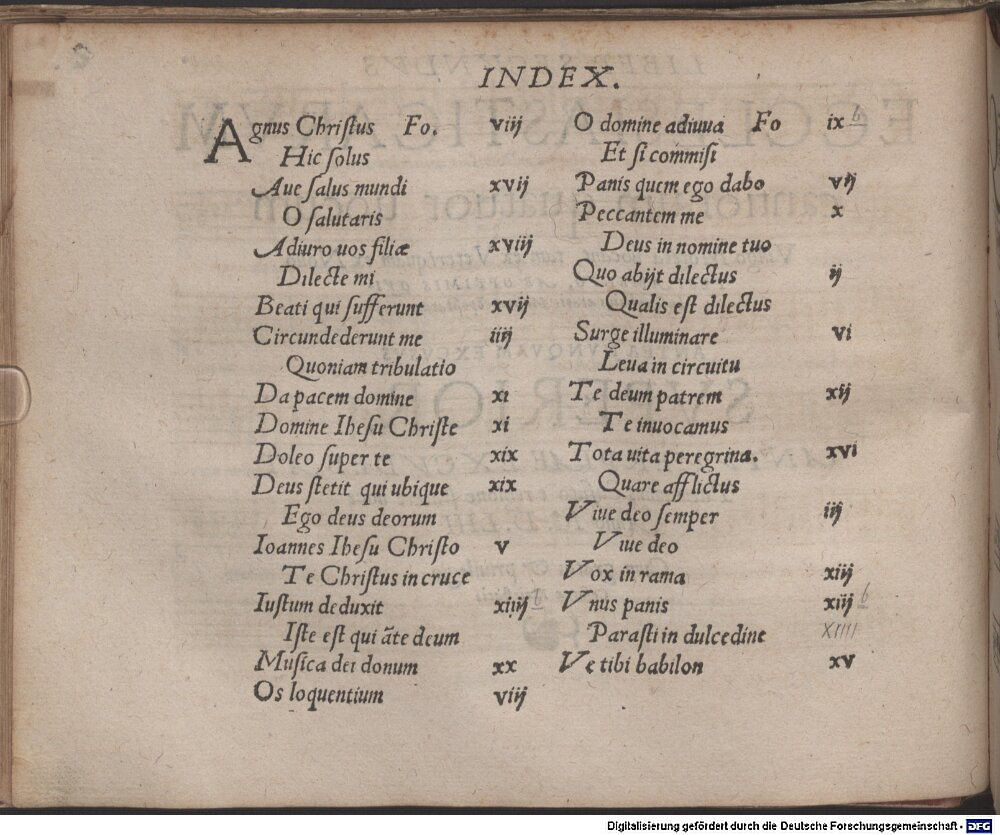 INDEX.
Agnus Chriſtus Fo. viij
Hic ſolus
Aue ſalus mundi xvij
O ſalutaris
Adiuro uos filiæ xviij
Dilecte mi
Beati qui ſufferunt xvij
Circundederunt me iiij
Quoniam tribulatio
Da pacem domine xi
Domine Iheſu Chriſte xi
Doleo ſuper te xix
Deus ſtetit qui ubique xix
Ego deus deorum
Ioannes Iheſu Chriſto v
Te Chriſtus in cruce
Iuſtum deduxit xiiij
Iſte eſt qui āte deum
Muſica dei donum xx
Os loquentium viij
O domine adiuua Fo ix b
Et ſi commiſi
Panis quem ego dabo vij
Peccantem me x
Deus in nomine tuo
Quo abijt dilectus ij
Qualis eſt dilectus
Surge illuminare vi
Leua in circuitu
Te deum patrem xij
Te inuocamus
Tota uita peregrina. xvi
Quare afflictus
Viue deo ſemper iij
Viue deo
Vox in rama xiij
Vnus panis xiij b
Paraſti in dulcedine XIIII
Ve tibi babilon xv
Digitalisierung gefördert durch die Deutsche Forschungsgemeinschaft - DFG